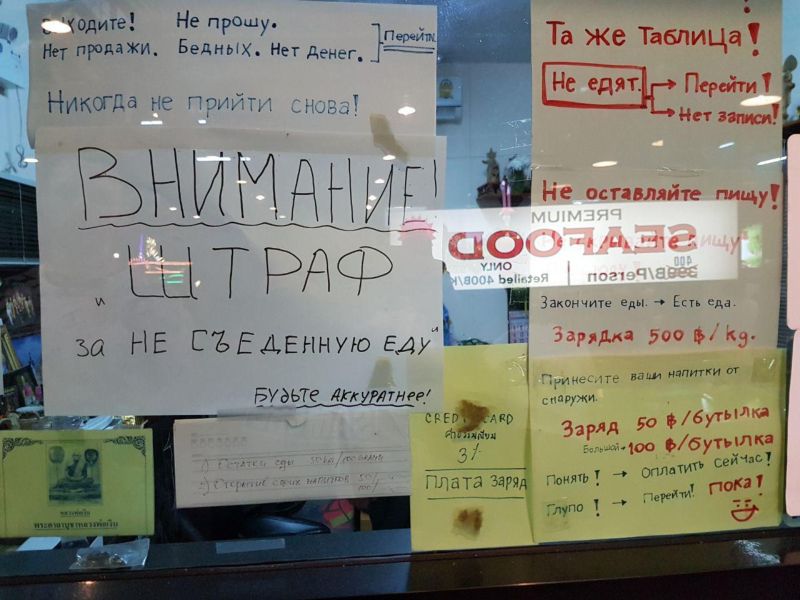 Не прошу.
Нет продажи. Бедных. Нет денег. Перейти
Никогда не прийти снова!
ВНИМАНИЕ!
"ШТРАФ
за НЕ СЪЕДЕННУЮ ЕДУ"
Будьте аккуратнее!
Та же Таблица!
Не едят. → Перейти!
→ Нет записи!
Не оставляйте пищу!
PREMIUM
SEAFOOD
ONLY
400
B/Person
Retailed 400B/K
Закончите еды. → Есть еда.
Зарядка 500 ฿/kg.
Принесите ваши напитки от
снаружи.
Заряд 50 ฿/бутылка
Большой→ 100 ฿/бутылка
Понять! → Оплатить Сейчас!
Глупо! → Перейти! Пока!
CREDIT CARD
3%
Плата Заряд
1) Остатки еды
หลวงพ่อเงิน